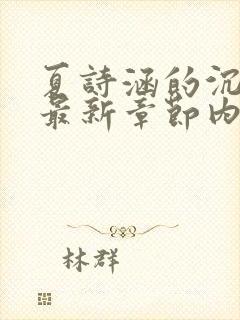 夏詩涵的沉
最新章節內
林群